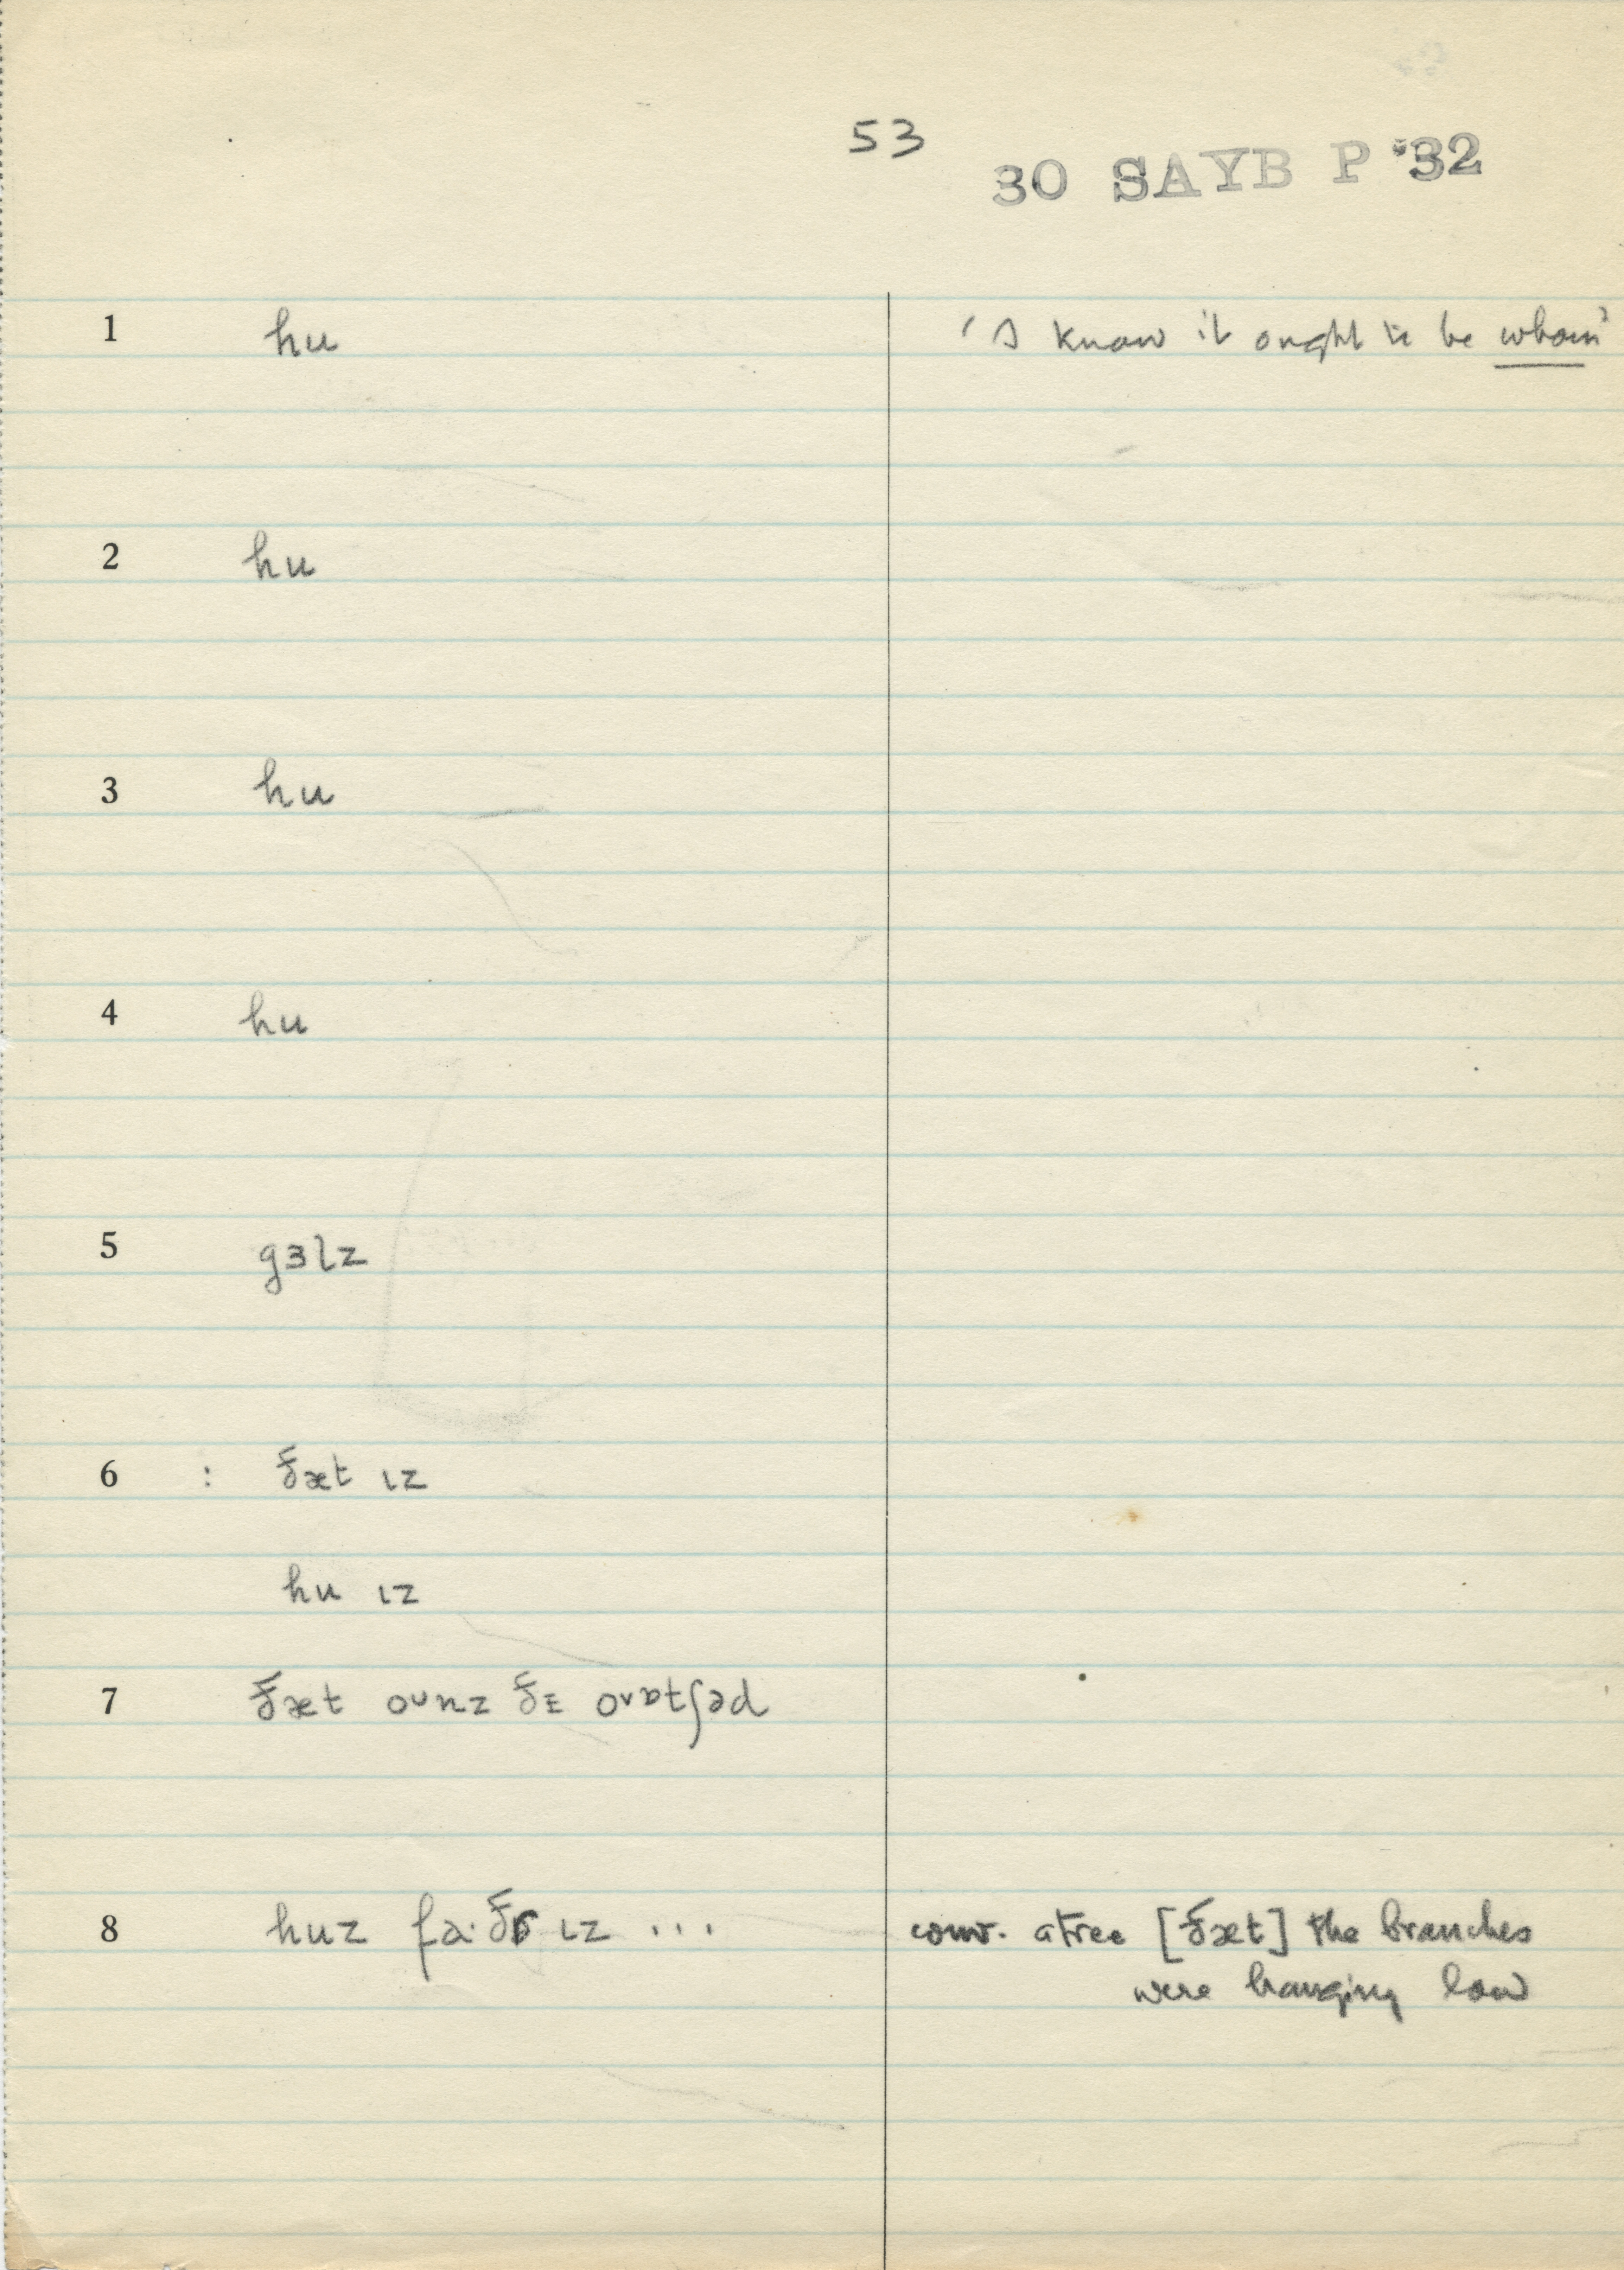 53
30 SAYB P '32
1 hu 'I know it ought to be whom'
2 hu
3 hu
4 hu
5 gɜlz
6 : ðæt ɩz
hu ɩz
7 ðæt oʊnz ðɪ ɔʊɒtʃəd
8 huz fa·ðɚ ɩz ... conv. a tree [ðæt] the branches
were hanging low